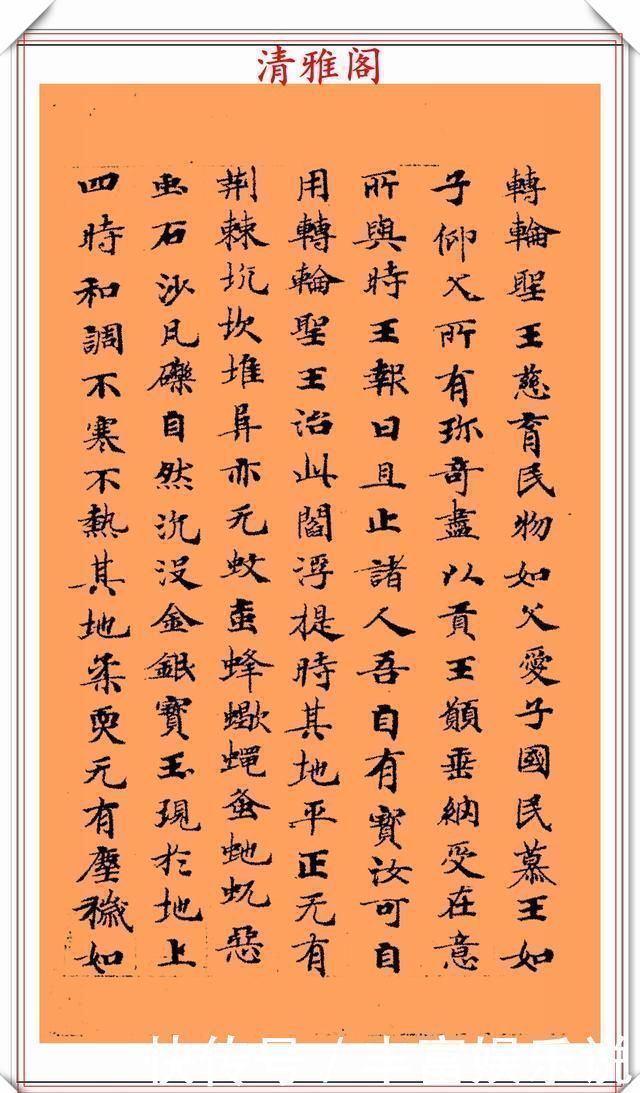 清雅阁
轉輪聖王慈育民物如父愛子國民慕王如
子仰父所有珎奇盡以貢王願垂納受在意
所與時王報曰且止諸人吾自有寶汝可自
用轉輪聖王治此閻浮提時其地平正无有
荆棘坑坎堆阜亦无蚊䖟蜂蠍蠅蚤虵蚖惡
虫石沙凡礫自然沉没金銀寶玉現扵地上
四時和調不寒不熱其地柔耎无有塵穢如